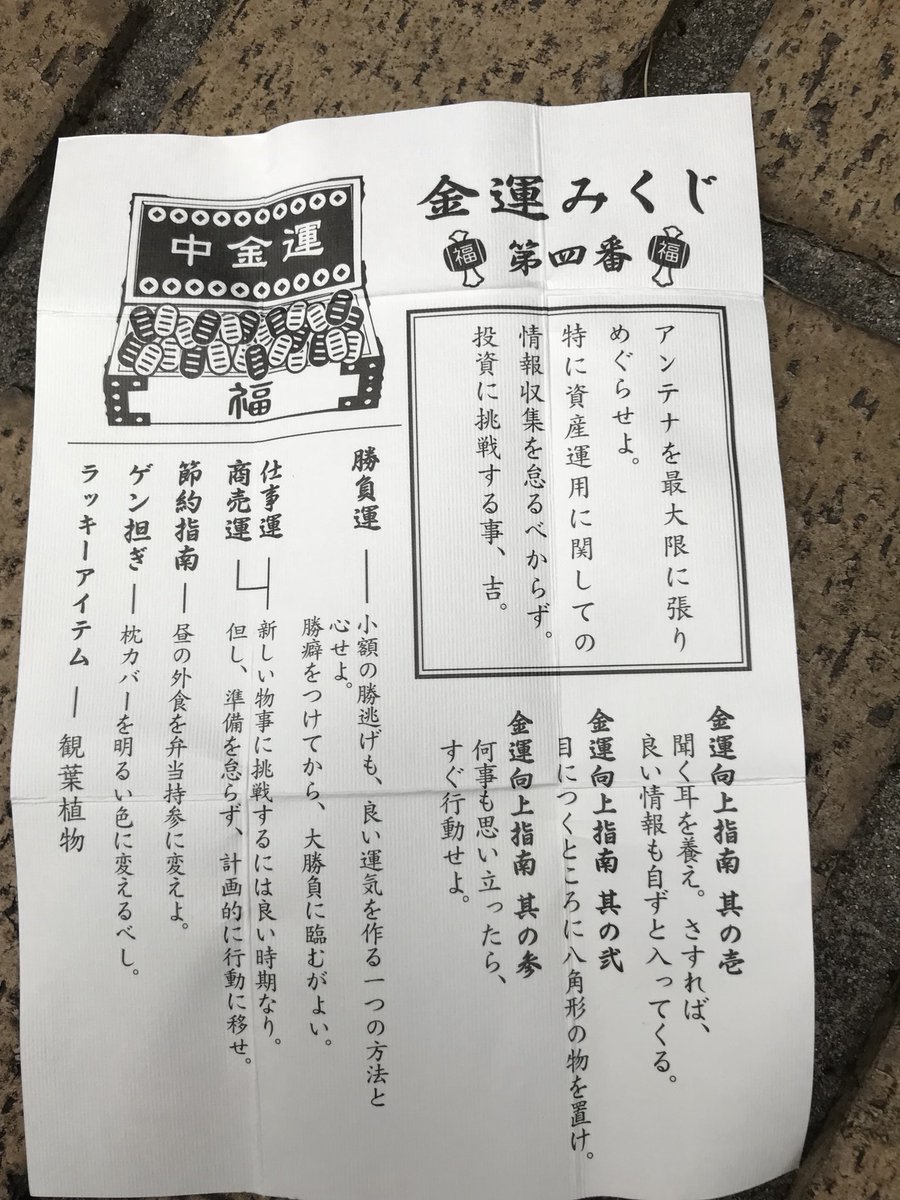 金運みくじ
福 第四番 福
アンテナを最大限に張り
めぐらせよ。
特に資産運用に関しての
情報収集を怠るべからず。
投資に挑戦する事、吉。
金運向上指南 其の壱
聞く耳を養え。さすれば、
良い情報も自ずと入ってくる。
金運向上指南 其の弐
目につくところに八角形の物を置け。
金運向上指南 其の参
何事も思い立ったら、
すぐ行動せよ。
中金運
福
勝負運 ― 小額の勝逃げも、良い運気を作る一つの方法と
心せよ。
勝癖をつけてから、大勝負に臨むがよい。
仕事運
商売運
新しい物事に挑戦するには良い時期なり。
但し、準備を怠らず、計画的に行動に移せ。
節約指南 ― 昼の外食を弁当持参に変えよ。
ゲン担ぎ ― 枕カバーを明るい色に変えるべし。
ラッキーアイテム ― 観葉植物